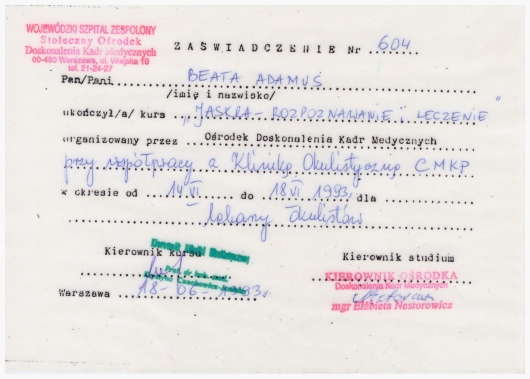 WOJEWÓDZKI SZPITAL ZESPOLONY
Stołeczny Ośrodek
Doskonalenia Kadr Medycznych
00-480 Warszawa, ul. Wiejska 19
tel. 21-24-27
ZAŚWIADCZENIE Nr 604
Pan/Pani BEATA ADAMUS
/imię i nazwisko/
ukończył/a/ kurs „JASKRA - ROZPOZNAWANIE i LECZENIE"
organizowany przez Ośrodek Doskonalenia Kadr Medycznych
przy współpracy z Kliniką Okulistyczną CMKP
w okresie od 14 VI do 18 VI 1993 dla
lekarzy okulistów
Kierownik kursu
Kierownik studium
KIEROWNIK OŚRODKA
Doskonalenia Kadr Medycznych
mgr Elżbieta Nestorowicz
Warszawa 18-06-1993r